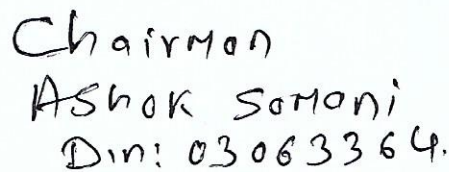 Chairman
Ashok Somani
Din: 03063364.